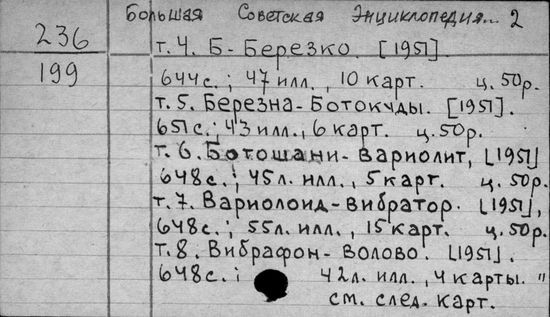 Большая Советская Энциклопедия... 2
236
199
т. 4. Б - Березко. [1951].
644 с.; 47 илл., 10 карт. ц. 50р.
т. 5. Березна - Ботокуды. [1951].
651 с.; 43 илл., 6 карт. ц. 50р.
т. 6. Ботошани - Вариолит, [1951]
648 с.; 45л. илл., 5 карт. ц. 50р.
т. 7. Вариолоид - вибратор. [1951],
648 с.; 55л. илл., 15 карт. ц. 50р.
т. 8. Вибрафон - Волово. [1951].
648 с.; 42л. илл., 4 карты. "
см. след. карт.